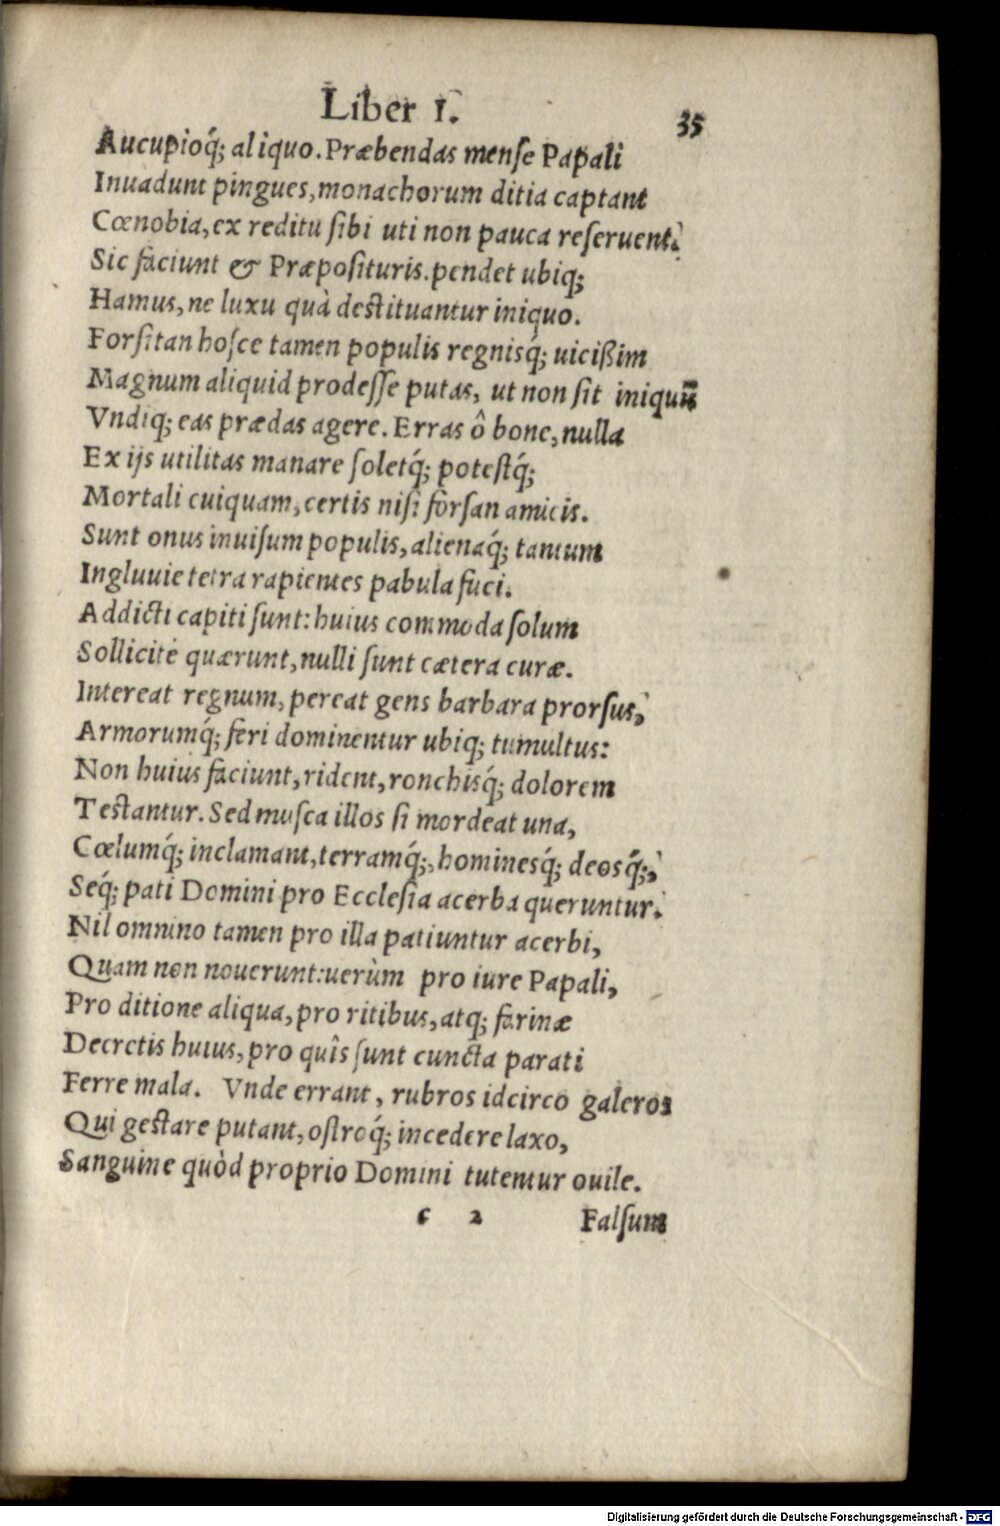 Liber I.
35
Aucupioq́; aliquo. Præbendas menſe Papali
Inuadunt pingues, monachorum ditia captant
Cœnobia, ex reditu ſibi uti non pauca reſeruent.
Sic faciunt & Præpoſituris. pendet ubiq;
Hamus, ne luxu quà deſtituantur iniquo.
Forſitan hoſce tamen populis regnisq́; uicißim
Magnum aliquid prodeſſe putas, ut non ſit iniquū
Vndiq; eas prædas agere. Erras ô bone, nulla
Ex ijs utilitas manare ſoletq́; poteſtq́;
Mortali cuiquam, certis niſi forſan amicis.
Sunt onus inuiſum populis, alienaq́; tantum
Ingluuie tetra rapientes pabula fuci.
Addicti capiti ſunt: huius commoda ſolum
Sollicitè quærunt, nulli ſunt cætera curæ.
Intereat regnum, pereat gens barbara prorſus,
Armorumq́; feri dominentur ubiq; tumultus:
Non huius faciunt, rident, ronchisq́; dolorem
Teſtantur. Sed muſca illos ſi mordeat una,
Cœlumq́; inclamant, terramq́;, hominesq́; deosq́;,
Seq́; pati Domini pro Eccleſia acerba queruntur.
Nil omnino tamen pro illa patiuntur acerbi,
Quam non nouerunt: uerùm pro iure Papali,
Pro ditione aliqua, pro ritibus, atq; farinæ
Decretis huius, pro quîs ſunt cuncta parati
Ferre mala. Vnde errant, rubros idcirco galeros
Qui geſtare putant, oſtroq́; incedere laxo,
Sanguine quòd proprio Domini tutentur ouile.
c 2 Falſum
Digitalisierung gefördert durch die Deutsche Forschungsgemeinschaft - DFG